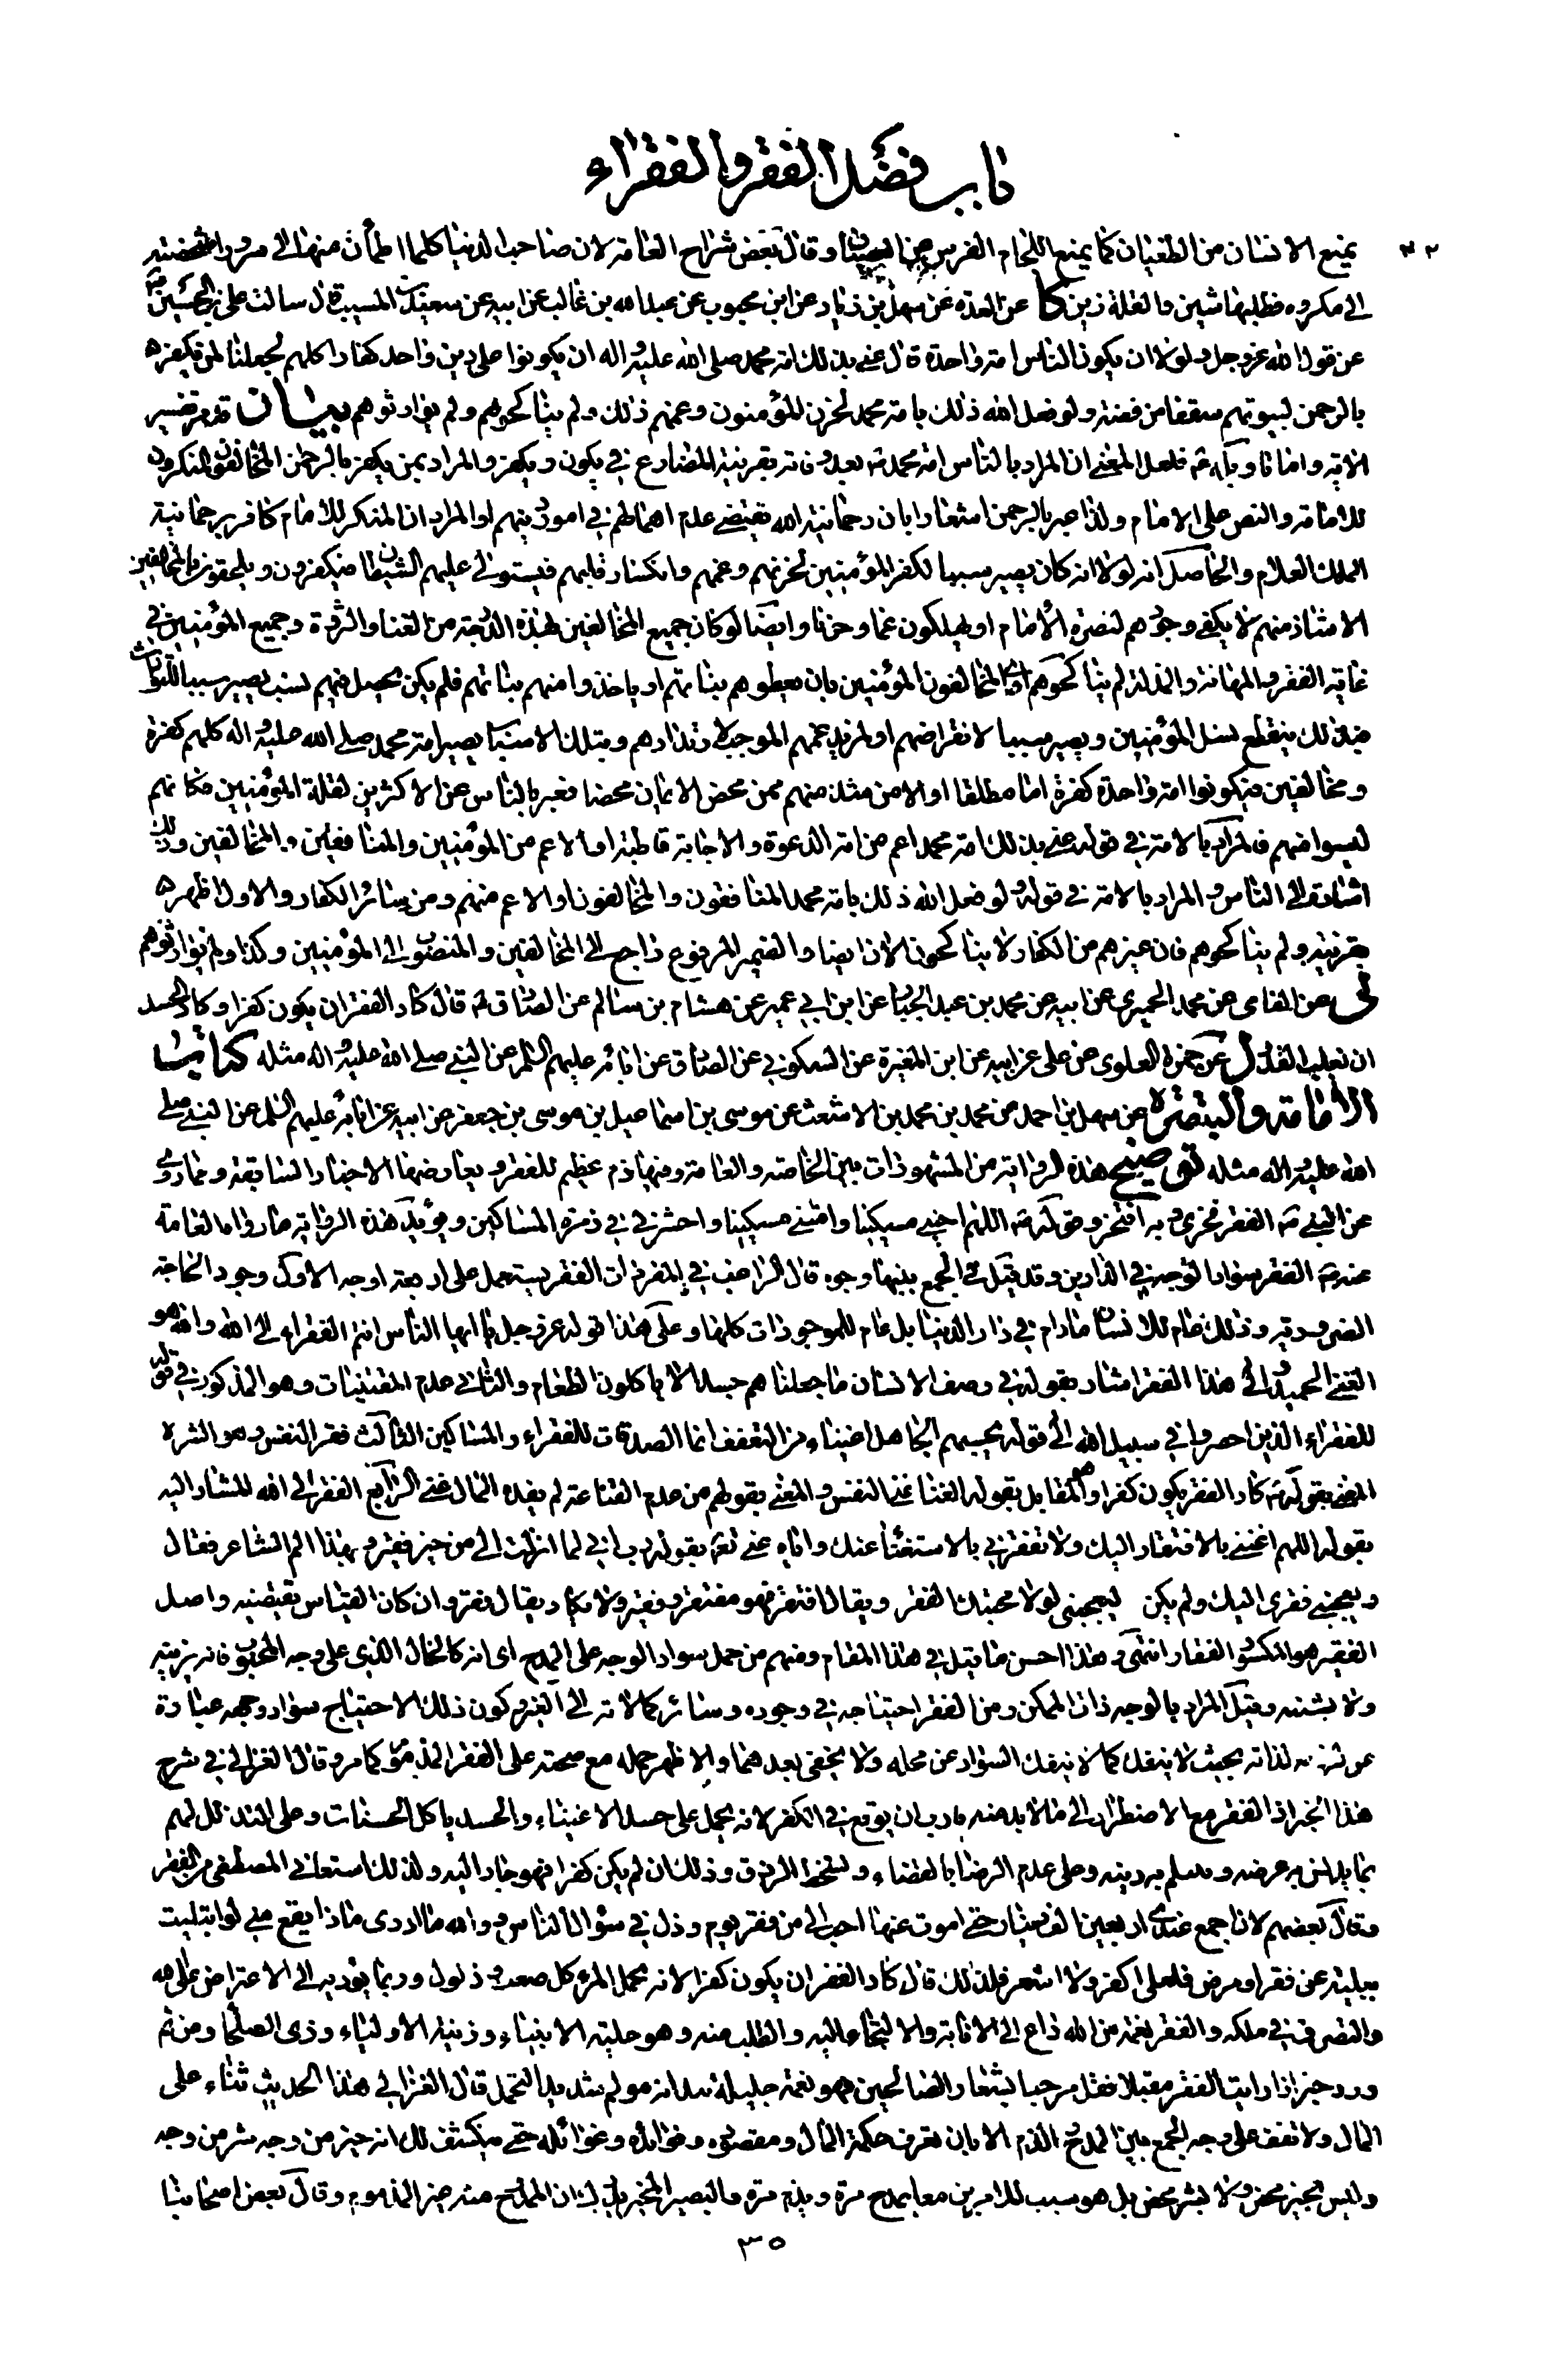 باب فضل الفقر والفقراء
يمنع الانسان من الطغيان كما يمنع اللجام الفرس من العصيان وقال بعض شراح العامة لان صاحب الدنيا كلما اطمأن منها الى سرور اشخصته ٣٢
الى مكروه فطلبها شين والقلة زين كا عن العدة عن سهل بن زياد عن ابن محبوب عن عبد الله بن غالب عن ابيه عن سعيد بن المسيب قال سالت على بن الحسين ع
عن قول الله عز وجل ولولا ان يكون الناس امة واحدة قال عنى بذلك امة محمد صلى الله عليه واله ان يكونوا على دين واحد كفارا كلهم لجعلنا لمن يكفر
بالرحمن لبيوتهم سقفا من فضة ولو فعل الله ذلك بامة محمد لحزن المؤمنون وغمهم ذلك ولم يناكحوهم ولم يوارثوهم بيان قد مر تفسير
الاية واما تاويله ع فلعل المعنى ان المراد بالناس امة محمد ص بعد وفاته بقرينة المضارع في يكون ويكفر والمراد بمن يكفر بالرحمن المخالفون المنكرون
للامامة والنص على الامام ولذا عبر بالرحمن اشعارا بان رحمانية الله تقتضى عدم اهمالهم في امور دينهم او المراد ان المنكر للامام كافر برحمانية
الملك العلام والحاصل انه لولا انه كان يصير سببا لكفر المؤمنين لحزنهم وغمهم وانكسار قلبهم فيستولى عليهم الشيطان فيكفرون ويلحقون بالمخالفين
الا شاذ منهم لا يكفى وجودهم لنصرة الامام او يهلكون غما وحزنا وايضا لو كان جميع المخالفين بهذه الدرجة من الغنا والثروة وجميع المؤمنين في
غاية الفقر والمهانة والمذلة لم يناكحوهم اى المخالفون المؤمنين بان يعطوهم بناتهم او ياخذوا منهم بناتهم فلم يكن يحصل فيهم نسب يصير سببا للتوارث
فبذلك ينقطع نسل المؤمنين ويصير سببا لانقراضهم او لمزيد غمهم الموجب لارتدادهم وبتلك الاسباب يصير امة محمد صلى الله عليه واله كلهم كفرة
ومخالفين فيكونوا امة واحدة كفرة اما مطلقا او الا من شذ منهم ممن محض الايمان محضا فعبر بالناس عن الاكثرين لقلة المؤمنين فكانهم
ليسوا منهم فالمراد بالامة في قوله عنى بذلك امة محمد اعم من امة الدعوة والاجابة قاطبة او الاعم من المؤمنين والمنافقين والمخالفين وذلك
اشارة الى الناس والمراد بالامة في قوله ولو فعل الله ذلك بامة محمد المنافقون والمخالفون او الاعم منهم ومن سائر الكفار والاول اظهر
بقرينة ولم يناكحوهم فان غيرهم من الكفار لا يناكحون الان ايضا والضمير المرفوع راجع الى المخالفين والمنصوب الى المؤمنين وكذا ولم يوارثوهم
لى عن الفامى عن محمد الحميرى عن ابيه عن محمد بن عبد الجبار عن ابن ابي عمير عن هشام بن سالم عن الصادق ع قال كاد الفقر ان يكون كفرا وكاد الحسد
ان يغلب القدر ل عن حمزة العلوى عن على عن ابيه عن ابن المغيرة عن السكوني عن الصادق عن ابائه عليهم السلم عن النبي صلى الله عليه واله مثله كتاب
الامامة والتبصرة عن سهل بن احمد عن محمد بن محمد بن الاشعث عن موسى بن اسماعيل بن موسى بن جعفر عن ابيه عن ابائه عليهم السلم عن النبي صلى
الله عليه واله مثله توضيح هذه الرواية من المشهورات بين الخاصة والعامة وفيها ذم عظيم للفقر ويعارضها الاخبار السابقة وما روى
عن النبي ص الفقر فخرى وبه افتخر وقوله ص اللهم احينى مسكينا وامتنى مسكينا واحشرني في زمرة المساكين ويؤيد هذه الرواية ما رواه العامة
عنه ص الفقر سواد الوجه في الدارين وقد قيل في الجمع بينها وجوه قال الراغب في المفردات الفقر يستعمل على اربعة اوجه الاول وجود الحاجة
الضرورية وذلك عام للانسان مادام في دار الدنيا بل عام للموجودات كلها وعلى هذا قوله عز وجل يا ايها الناس انتم الفقراء الى الله والله هو
الغنى الحميد والى هذا الفقر اشار بقوله في وصف الانسان ما جعلناهم جسدا لا ياكلون الطعام والثاني عدم المقتنيات وهو المذكور في قوله
للفقراء الذين احصروا في سبيل الله الى قوله يحسبهم الجاهل اغنياء من التعفف انما الصدقات للفقراء والمساكين الثالث فقر النفس وهو الشره
المعنى بقوله ص كاد الفقر يكون كفرا وهو المقابل بقوله الغنا غنى النفس والمعنى بقولهم من عدم القناعة لم يفده المال غنى الرابع الفقر الى الله المشار اليه
بقوله اللهم اغننى بالافتقار اليك ولا تفقرني بالاستغناء عنك واياه عنى تع بقوله رب انى لما انزلت الى من خير فقير وبهذا الم الشاعر فقال
ويعجبنى فقرى اليك ولم يكن ليعجبنى لولا محبتك الفقر ويقال افتقر فهو مفتقر وفقير ولا يكاد يقال فقر وان كان القياس يقتضيه واصل
الفقير هو المكسور الفقار انتهى وهذا احسن ما قيل في هذا المقام ومنهم من حمل سواد الوجه على المدح اى انه كالخال الذى على وجه المحبوب فانه يزينه
ولا يشينه وقيل المراد بالوجه ذات الممكن ومن الفقر احتياجه في وجوده وسائر كمالاته الى الغير وكون ذلك الاحتياج سواد وجهه عبارة
عن لزومه لذاته بحيث لا ينفك كما لا ينفك السواد عن محله ولا يخفى بعدهما والاظهر حمله مع صحته على الفقر المذموم كما مر وقال الغزالي في شرح
هذا الخبر اذ الفقر مع الاضطرار الى ما لابد منه قارب ان يوقع في الكفر لانه يحمل على حسد الاغنياء والحسد ياكل الحسنات وعلى التذلل لهم
بما يدنس به عرضه ويثلم به دينه وعلى عدم الرضا بالقضاء وتسخط الرزق وذلك ان لم يكن كفرا فهو جار اليه ولذلك استعاذ المصطفى من الفقر
وقال بعضهم لان اجمع عندى اربعين الف دينار حتى اموت عنها احب الى من فقر يوم وذل في سؤال الناس ووالله ما ادرى ماذا يقع منى لو ابتليت
ببلية عن فقر او مرض فلعلى اكفر ولا اشعر فلذلك قال كاد الفقر ان يكون كفرا لانه يحمل المرء كل صعب وذلول وربما يؤديه الى الاعتراض على الله
والتصرف في ملكه والفقر نعمة من الله داع الى الانابة والالتجاء اليه والطلب منه وهو حلية الانبياء وزينة الاولياء وزى الصلحاء ومن ثم
ورد خبر اذا رايت الفقر مقبلا فقل مرحبا بشعار الصالحين فهو نعمة جليلة بيد انه مولم شديد التحمل قال الغزالي هذا الحديث ثناء على
المال ولا تقف على وجه الجمع بين المدح والذم الا بان تعرف حكمة المال ومقصوده وفوائده وغوائله حتى ينكشف لك انه خير من وجه شر من وجه
وليس بخير محض ولا بشر محض بل هو سبب للامرين معا يمدح مرة ويذم مرة والبصير المميز يدرك ان الممدوح منه غير المذموم وقال بعض اصحابنا
٣٥